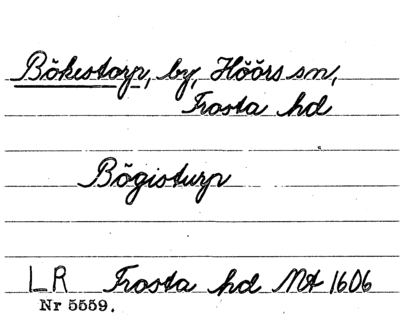 Bökestorp, by, Höörs sn,
Frosta hd
Bögisturp
LR Frosta hd Mt 1606
Nr 5559.